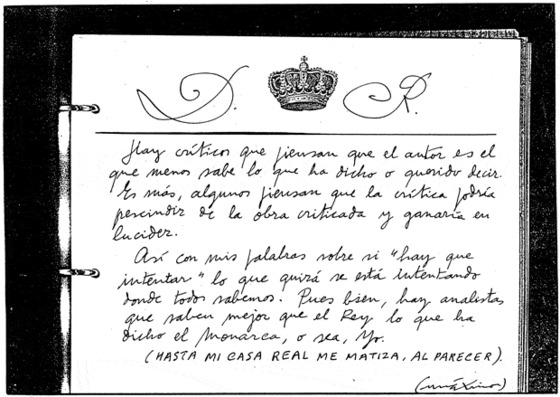 D. R.
Hay críticos que piensan que el autor es el
que menos sabe lo que ha dicho o querido decir.
Es más, algunos piensan que la crítica podría
pescindir de la obra criticada y ganaría en
lucidez.
Así con mis palabras sobre si "hay que
intentar" lo que quizá se está intentando
donde todos sabemos. Pues bien, hay analistas
que saben mejor que el Rey lo que ha
dicho el Monarca, o sea, Yo.
(HASTA MI CASA REAL ME MATIZA, AL PARECER).
(máximo)